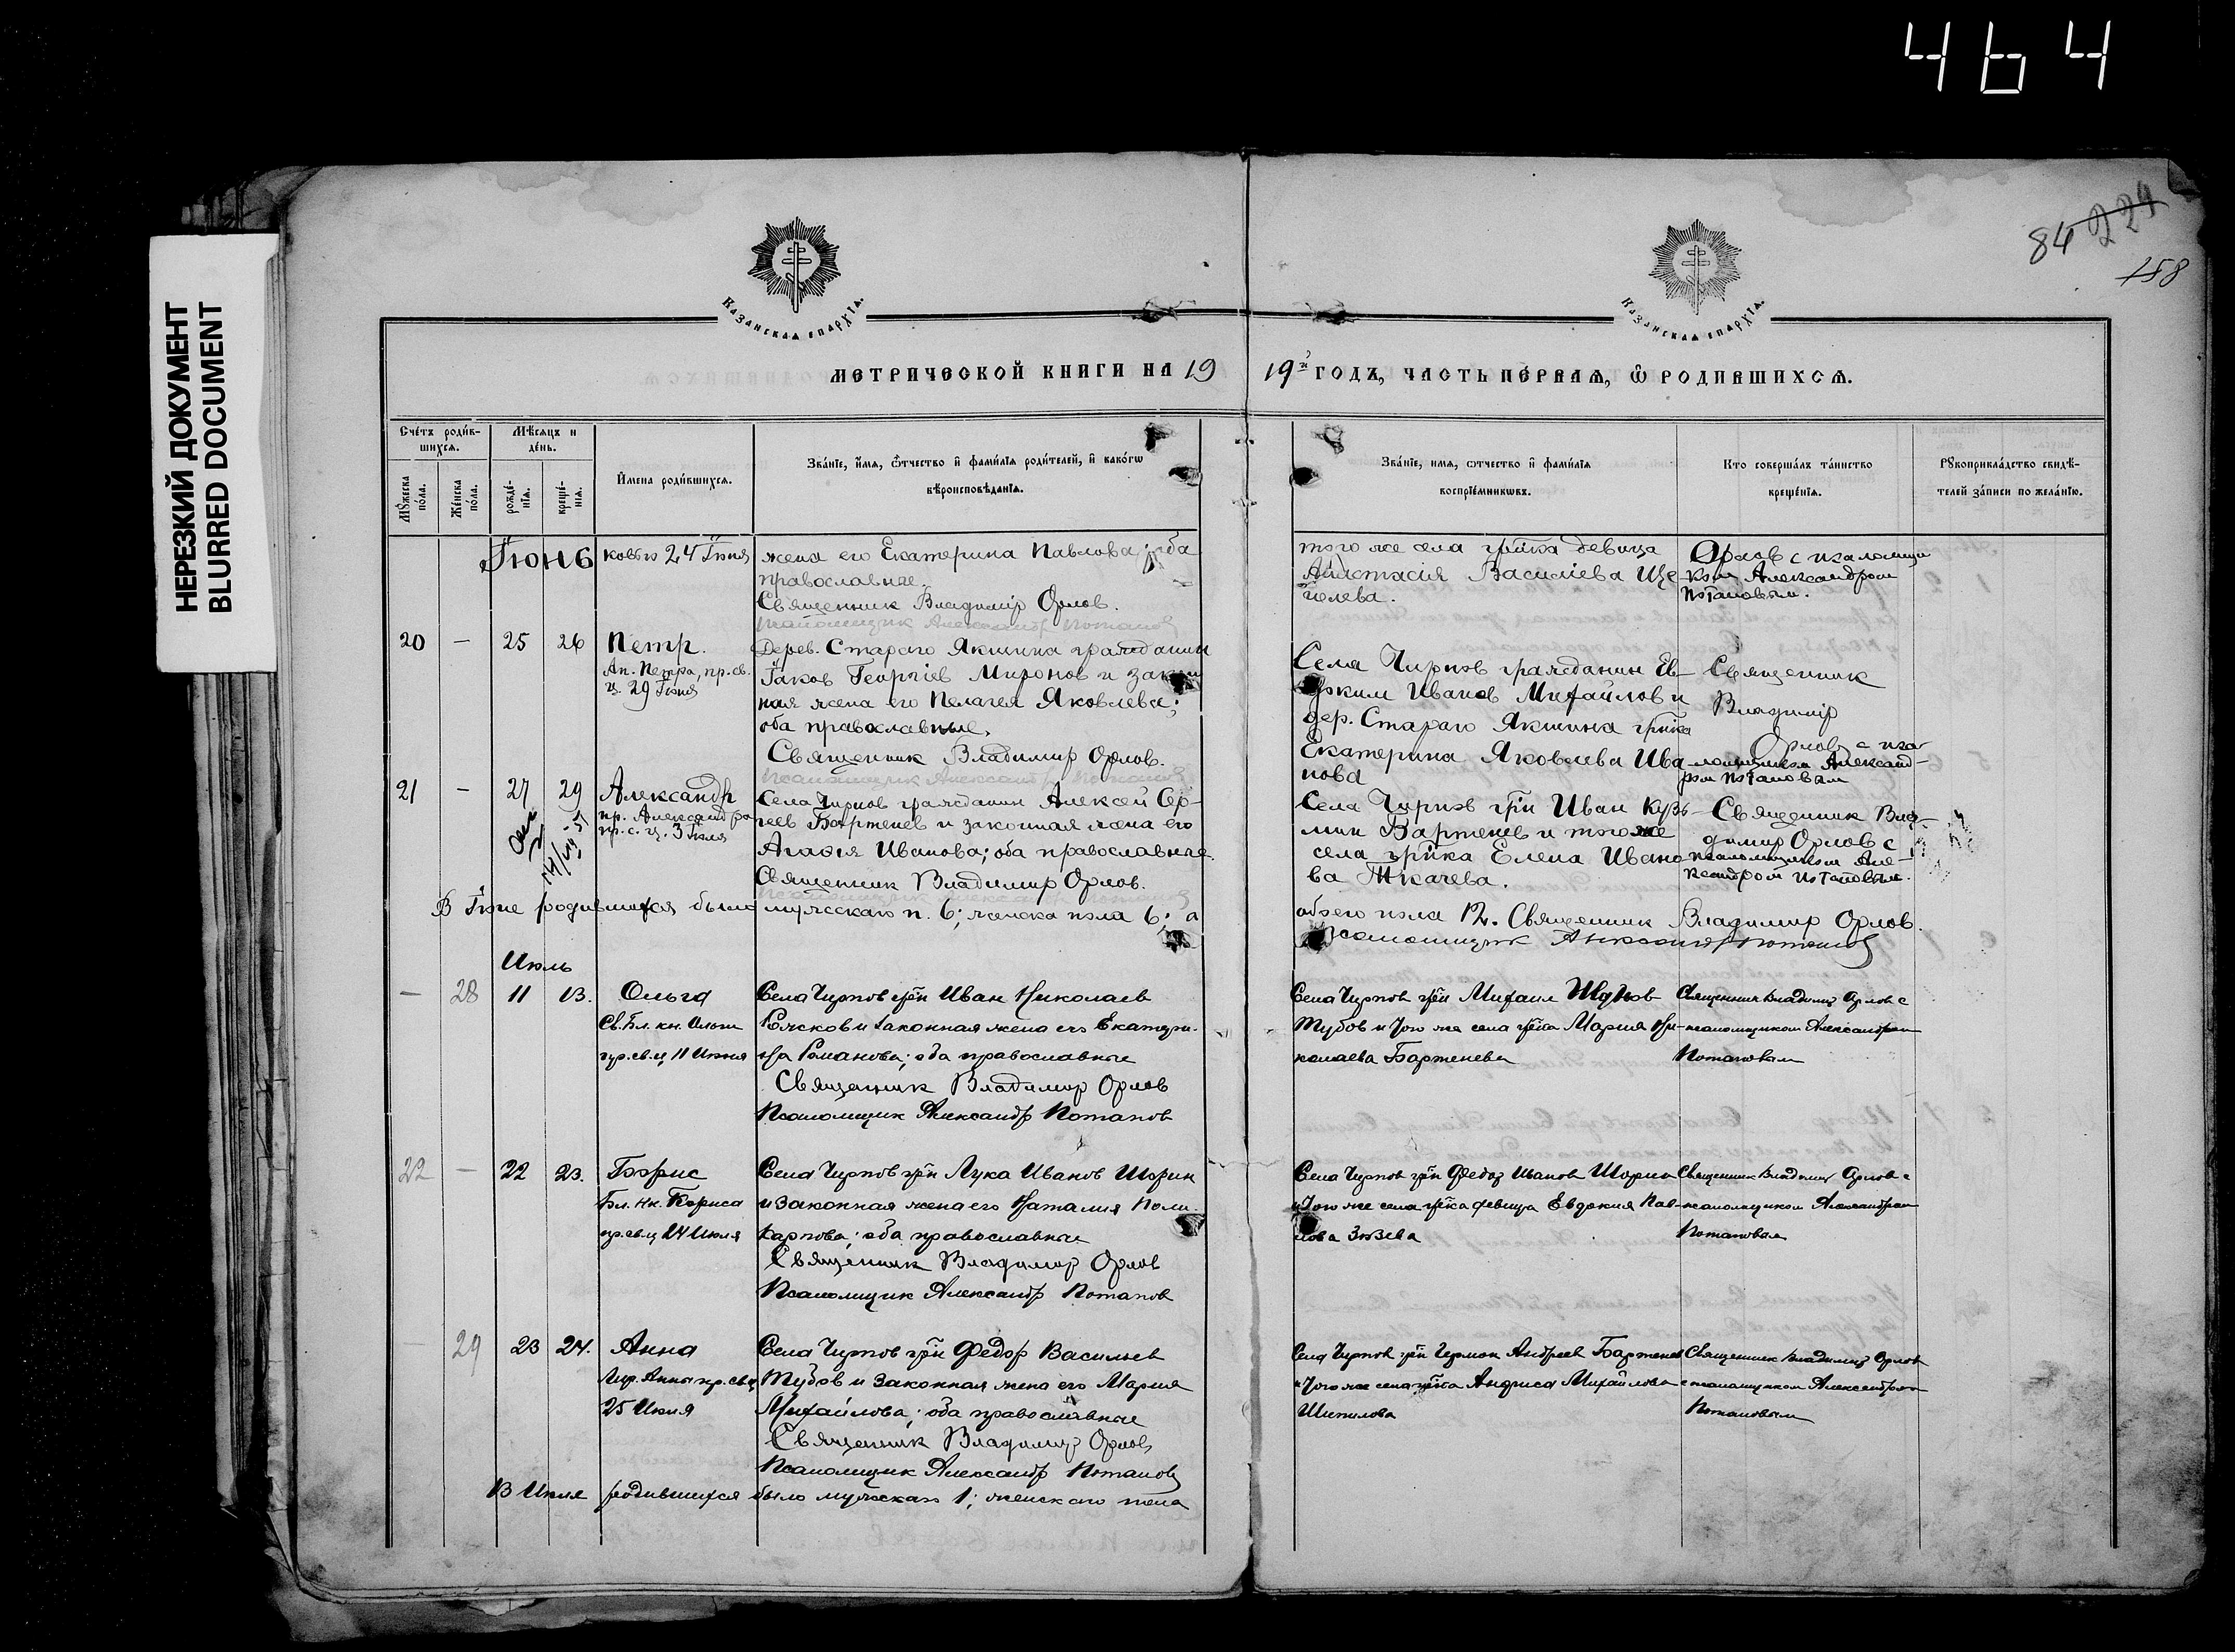 464
НЕРЕЗКИЙ ДОКУМЕНТ
BLURRED DOCUMENT
84 224
158
Казанская епархїѧ.
Казанская епархїѧ.
МЕТРИЧЕСКОЙ КНИГИ НА 1919й ГОДЪ, ЧАСТЬ ПЕРВАѦ, Ѡ РОДИВШИХСѦ.
Счетъ родив-
шихсѧ.
Мꙋжеска пола.
Женска пола.
Мѣсѧцъ и
день.
рожде-
нїѧ.
креще-
нїѧ.
Имена родившихсѧ.
Званїе, имѧ, ѿчество и фамилїѧ родителей, и какогѡ
вѣроисповѣданїѧ.
Званїе, имѧ, ѿчество и фамилїѧ
воспрїемникѡвъ.
Кто совершалъ таинство
крещенїѧ.
Рꙋкоприкладство свидѣ-
телей записи по желанїю.
Їюнь
ковы 24 Їюня
жена его Екатерина Павлова; оба
православные.
Священник Владимїр Орлов.
Псаломщик Александр Потапов
того же села гр̃нка девица
Анастасия Василїева Ще-
голева.
Орлов с псаломщи-
ком Александром
Потаповым.
20 — 25 26 Петр.
Ап. Петра, пр. св.
ц. 29 Їюня
Дерев. Стараго Якшина гражданин
Їаков Георгїев Миронов и закон
ная жена его Пелагея Яковлева;
оба православные.
Священник Владимир Орлов.
Псаломщик Александр Потапов
Села Чирков гражданин Ев-
доким Иванов Михайлов и
дер. Стараго Якшина гр̃нка
Екатерина Яковлева Ива
нова
Священник
Владимїр
Орлов с пса-
ломщиком Александ-
ром Потаповым
21 — 27 29 Александр
пр. Александра
пр. с. ц. 3 Їюля
Села Чирков гражданин Алексей Сер-
геев Бартенев и законная жена его
Агафїя Иванова; оба православные.
Священник Владимир Орлов.
Села Чирков гр̃н Иван Кузь-
мин Бартенев и того же
села гр̃нка Елена Ивано
ва Ткачева.
Священник Вла-
димир Орлов с
псаломщиком Але-
ксандром Потаповым.
В Їюне родившихся было мужскаго п. 6; женска пола 6; а
обоего пола 12. Священник Владимир Орлов.
Псаломщик Александр Потапов
Июль
— 28 11 13. Ольга
Св. Бл. кн. Ольги
пр. св. ц 11 Июля
Села Чирков гр̃н Иван Николаев
и законная жена его Екатери-
на Романова; оба православные
Священник Владимир Орлов
Псаломщик Александр Потапов
Села Чирков гр̃н Михаил
Тубов и того же села гр̃нка Мария Ни-
колаева Бартенева
Священник Владимир Орлов с
псаломщиком Александром
Потаповым
22 — 22 23. Борис
Бл. кн. Бориса
пр. св. ц 24 Июля
Села Чирков гр̃н Лука Иванов Шорин
и законная жена его Наталия Поли-
карпова; оба православные
Священник Владимир Орлов
Псаломщик Александр Потапов
Села Чирков гр̃н Федор Иванов Шорин
и того же села гр̃нка девица Евдокия Пав-
лова
Священник Владимир Орлов с
псаломщиком Александром
Потаповым
— 29 23 24. Анна
пр. св. ц
25 Июля
Села Чирков гр̃н Федор Васильев
Тубов и законная жена его Мария
Михайлова; оба православные
Священник Владимир Орлов
Псаломщик Александр Потапов
Села Чирков гр̃н Герман Андреев Бартенев
и того же села гр̃нка Михайлова
Шипилова
Священник Владимир Орлов
с псаломщиком Александром
Потаповым
В Июле родившихся было мужскаго 1; женскаго пола